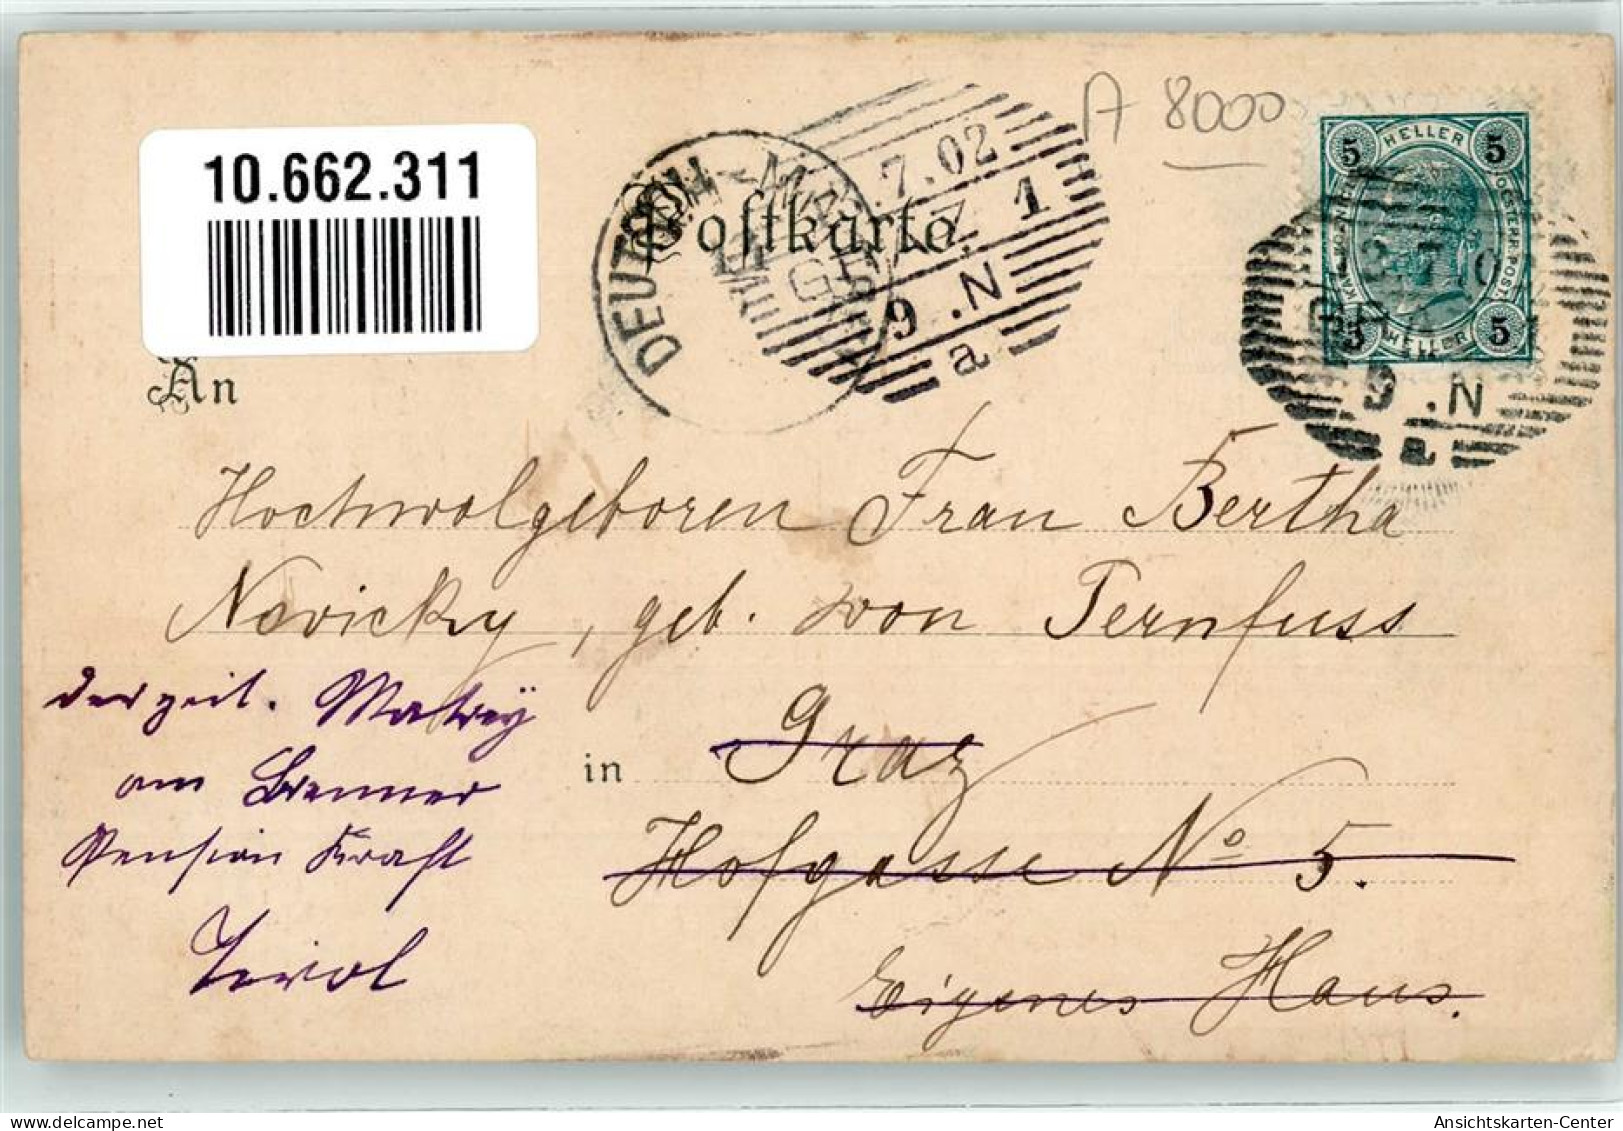 10.662.311
A 8000
Postkarte
DEUTSCH-MATREI
7.02
GRAZ 1
9 .N
a
5 HELLER 5
OESTERR. POST.
5 HELLER 5
9 .N
a
An
Hochwolgeboren Frau Bertha
Novicky, geb. von Pernfuss
in Graz
Hofgasse No 5.
Eigenes Haus.
derzeit. Matrey
am Brenner
Pension Kraft
Tirol
Ansichtskarten-Center